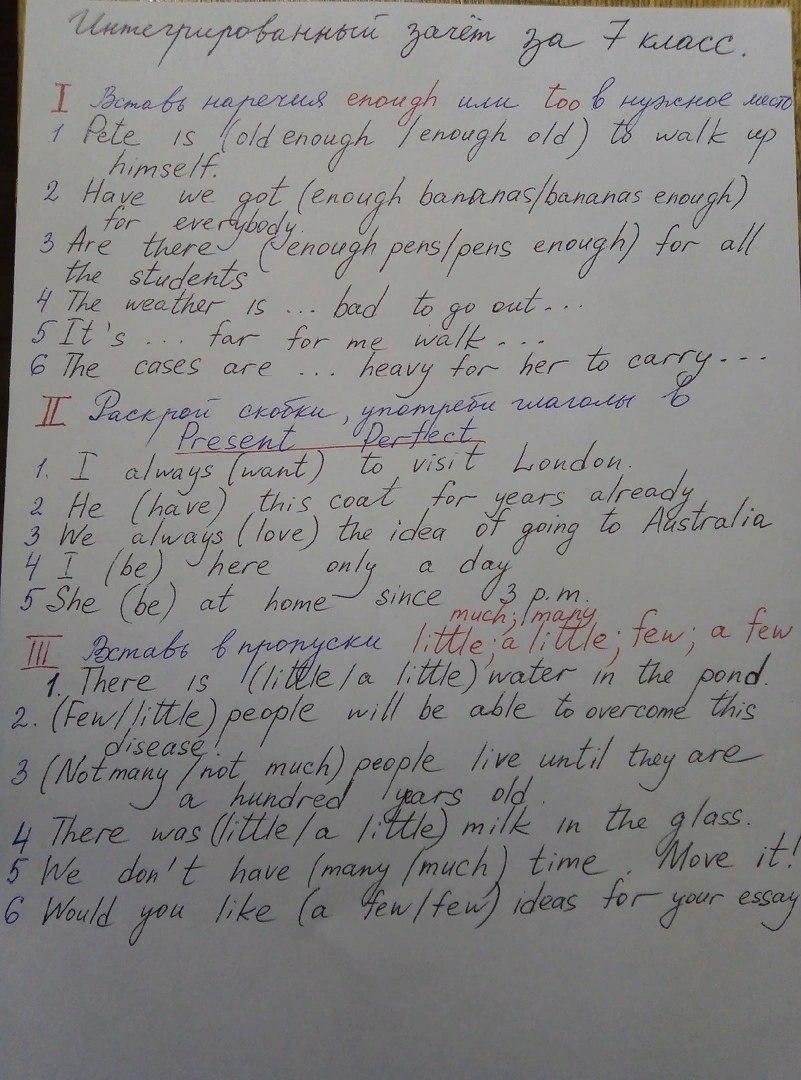 Интегрированный зачёт за 7 класс.
I Вставь наречия enough или too в нужное место
1 Pete is (old enough / enough old) to walk up
himself.
2 Have we got (enough bananas/bananas enough)
for everybody.
3 Are there (enough pens/pens enough) for all
the students
4 The weather is ... bad to go out...
5 It's ... far for me walk ...
6 The cases are ... heavy for her to carry...
II Раскрой скобки, употреби глаголы в
Present Perfect
1. I always (want) to visit London.
2 He (have) this coat for years already
3 We always (love) the idea of going to Australia
4 I (be) here only a day
5 She (be) at home since 3 p.m.
much; many
III Вставь в пропуски little; a little; few; a few
1. There is (little/a little) water in the pond.
2. (Few/little) people will be able to overcome this
disease.
3 (Not many / not much) people live until they are
a hundred years old.
4 There was (little/a little) milk in the glass.
5 We don't have (many/much) time. Move it!
6 Would you like (a few/few) ideas for your essay